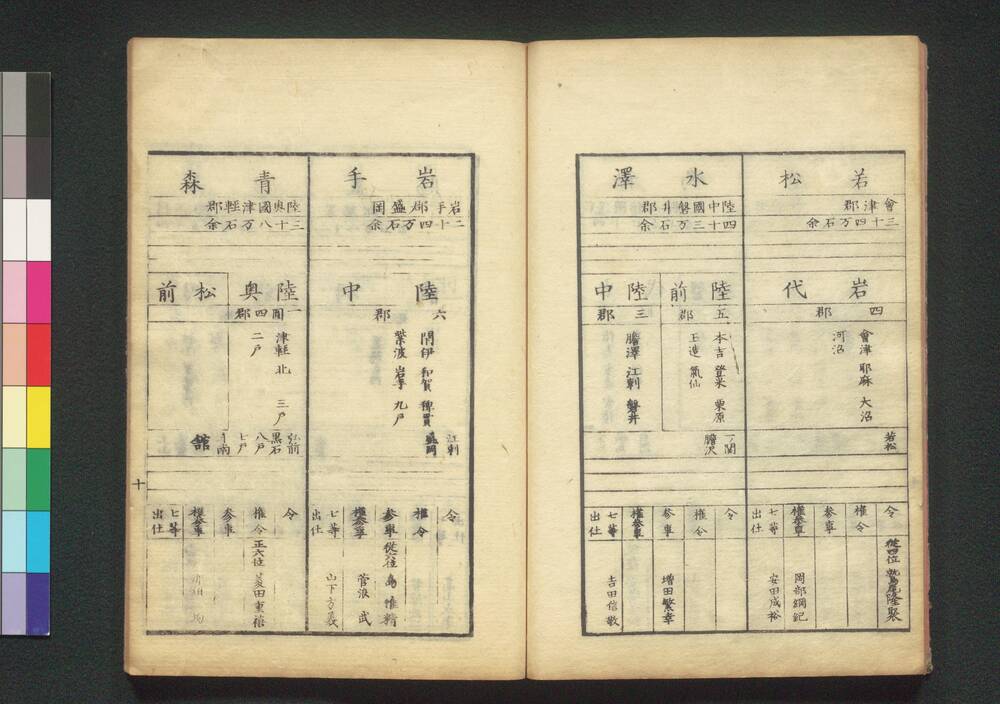 若松
會津郡
三十四万石余
岩代
四郡
會津 耶麻 大沼
河沼
若松
令
從四位 鷲尾隆聚
權令
参事
權参事
岡部綱紀
七等出仕
安田成裕
水澤
陸中國磐井郡
四十三万石余
陸前
五郡
本吉 登米 栗原
玉造 氣仙
陸中
三郡
膽澤 江刺 磐井
一ノ関
膽沢
令
權令
参事
増田繁幸
權参事
七等出仕
吉田信敬
岩手
岩手郡盛岡
二十四万石余
陸中
六郡
閉伊 和賀 稗貫
紫波 岩手 九戸
江刺
盛岡
令
權令
参事
從六位 島惟精
權参事
菅浪武
七等出仕
山下方義
青森
陸奥國津輕郡
三十八万石余
陸奥
一圓四郡
津軽 北 三戸
二戸
松前
弘前
黒石
八戸
七戸
斗南
舘
令
權令
正六位 菱田重禧
参事
權参事
七等出仕
十